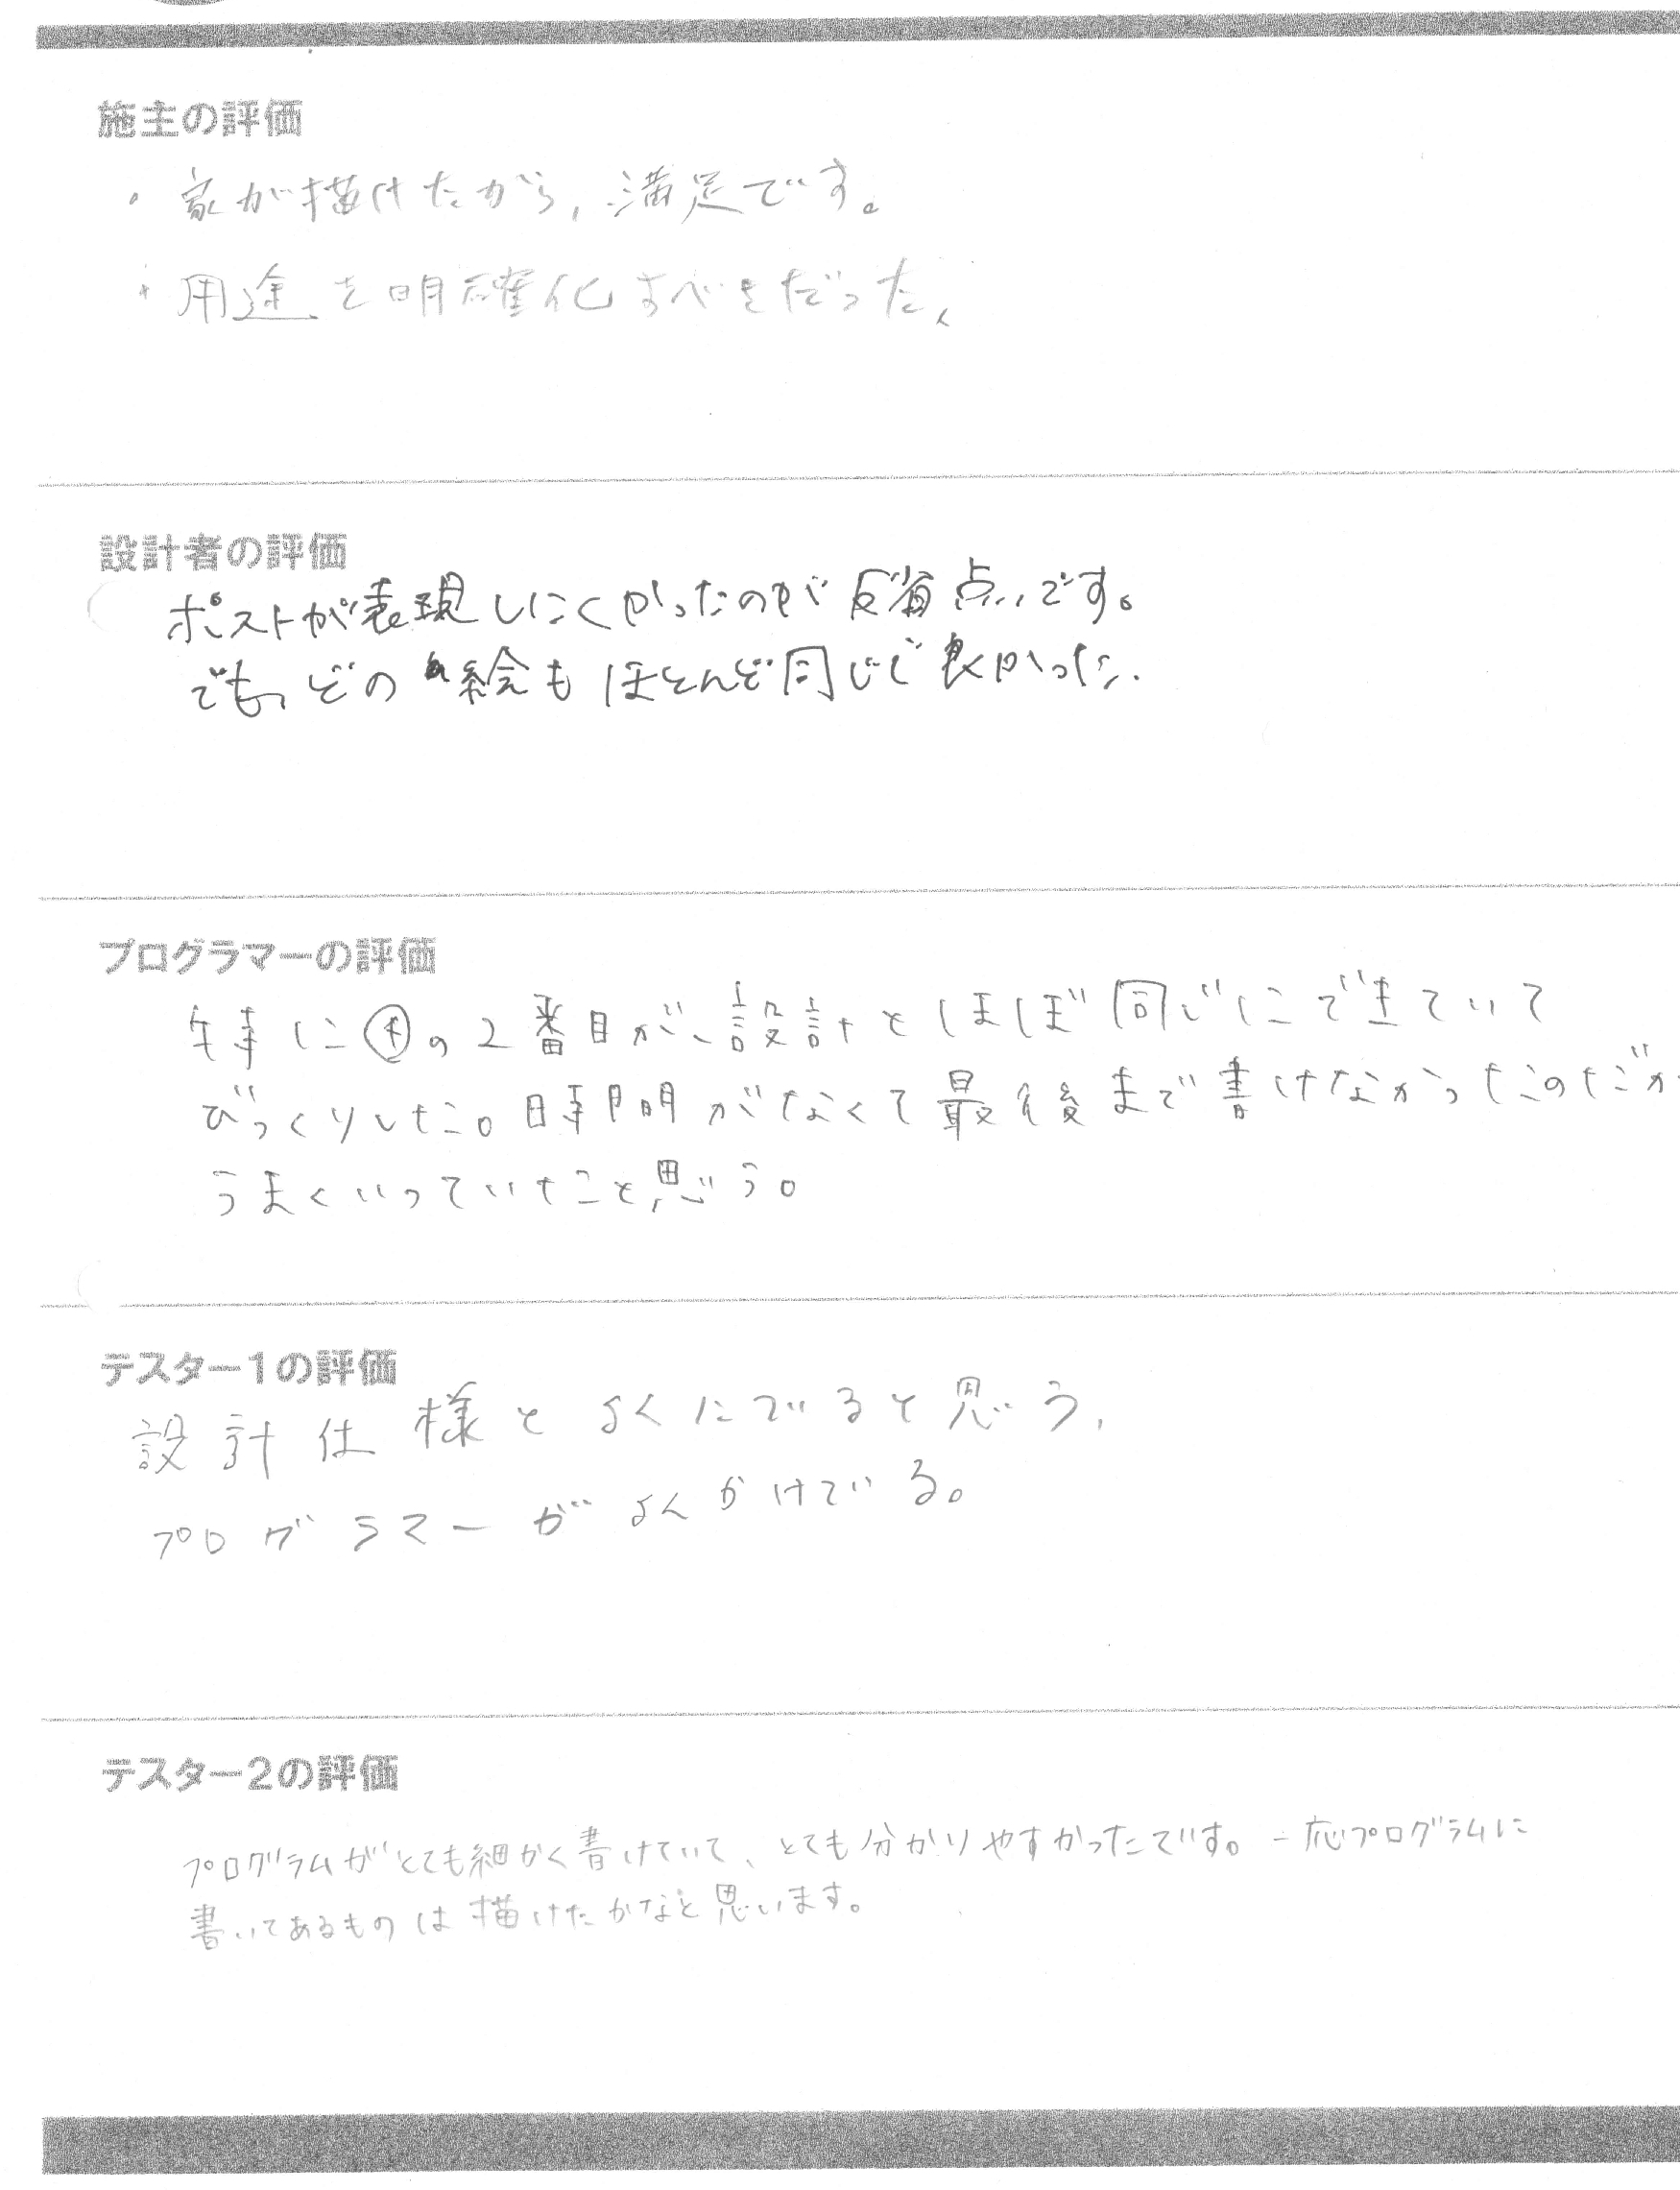 施主の評価
・家が描けたから,満足です。
・用途を明確化すべきだった、
設計者の評価
ポストが表現しにくかったのが反省点..です。
でも、どの絵もほとんど同じで良かった.
プログラマーの評価
特に④の2番目が、設計とほぼ同じにできていて
びっくりした。時間がなくて最後まで書けなかったのだが
うまくいっていたと思う。
テスター1の評価
設計仕様とよくにでいると思う,
プログラマーがよくかけでいる。
テスター2の評価
プログラムがとても細かく書けていて、とても分かりやすかったです。一応プログラムに
書いてあるものは描けたかなと思います。